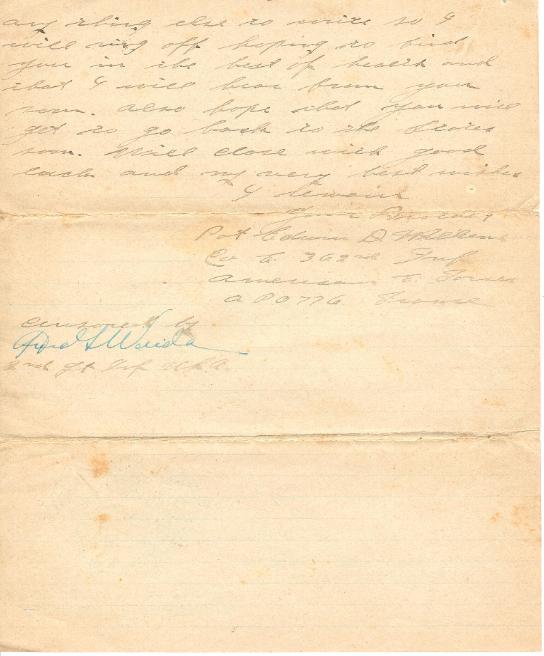 any thing else to write so I
will ring off hoping to find
you in the best of health and
that I will hear from you
soon. Also hope that you will
get to go back to the States
soon. Will close with good
luck and my very best wishes
I remain
Your
Pvt Edwin D.
Co E. 362nd Inf
American E. Forces
A P O 776 France
Censored by
2nd Lt Inf U.S.A.